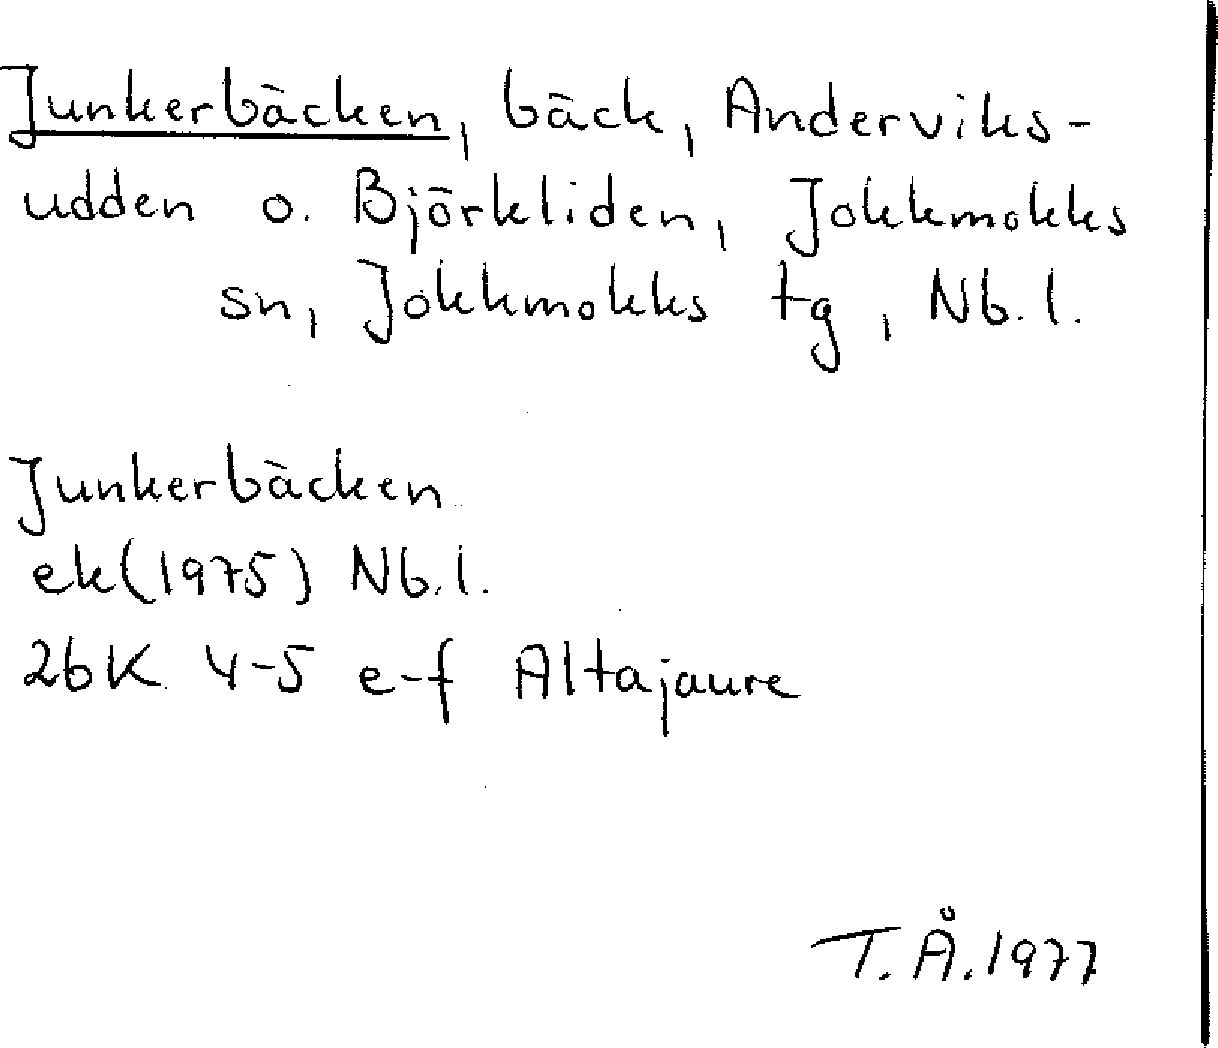 Junkerbäcken, bäck, Anderviks-
udden o. Björkliden, Jokkmokks
sn, Jokkmokks tg, Nb. l.
Junkerbäcken
ek(1975) Nb. l.
26K 4-5 e-f Altajaure
T. Å. 1977